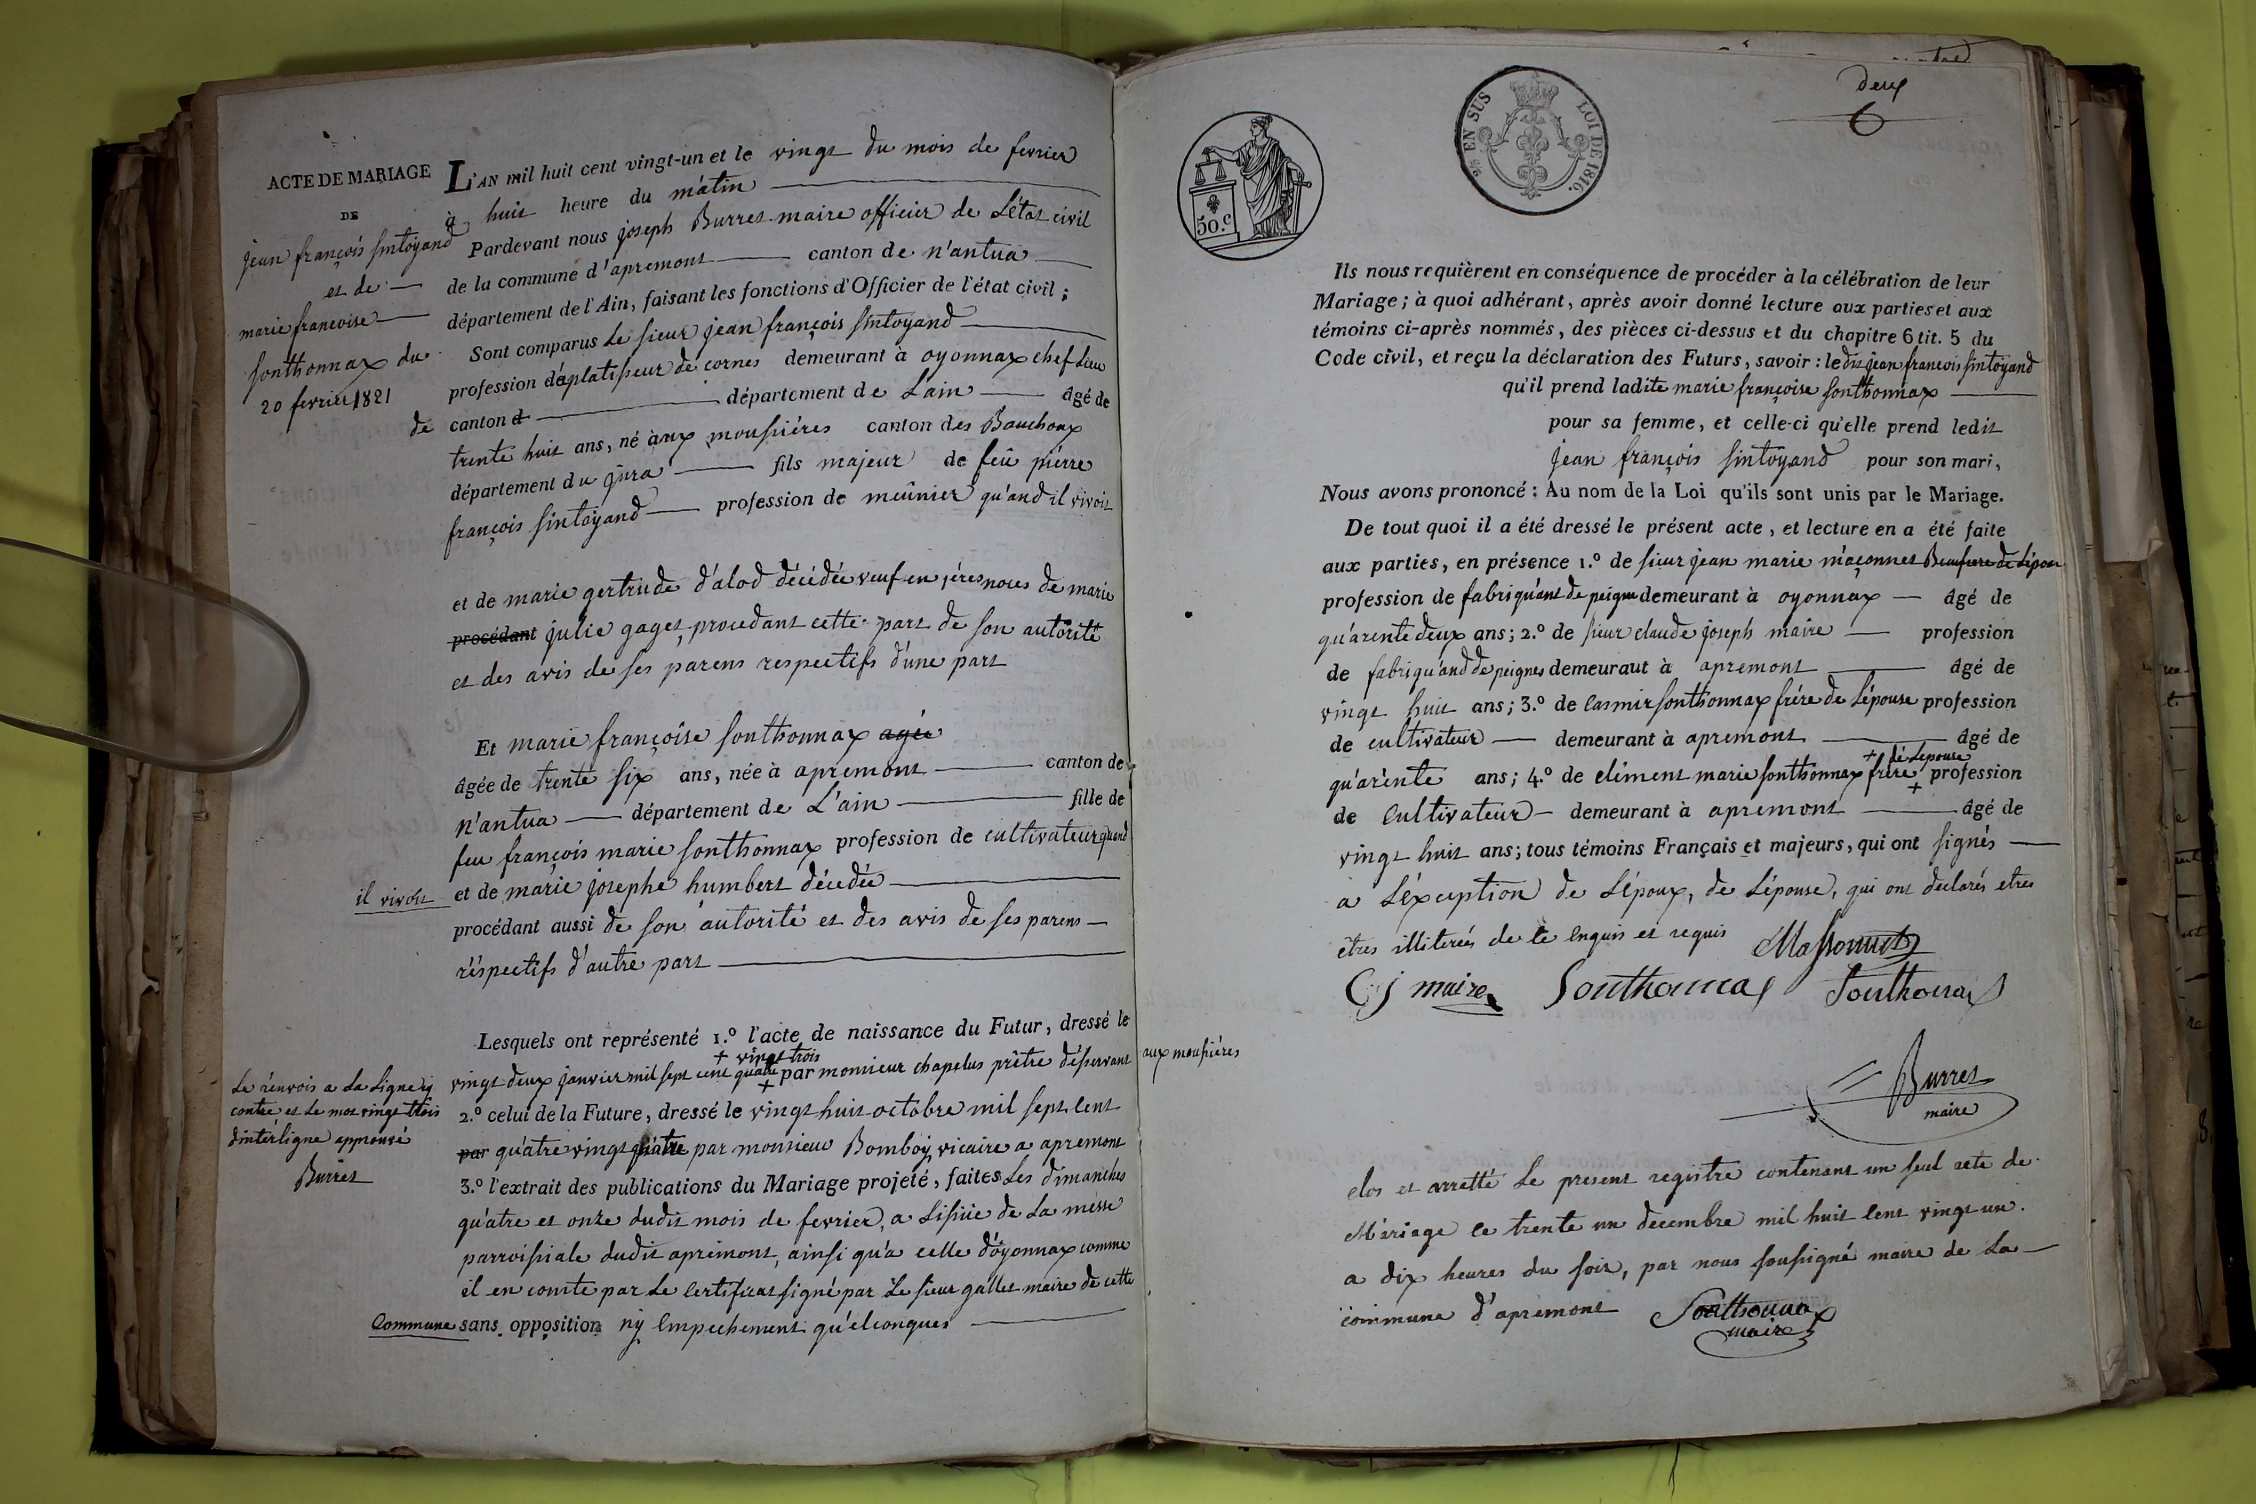 ACTE DE MARIAGE
DE
jean françois sintoyand
et de
marie francoise
sonthonnax du
20 fevrier 1821
L'AN mil huit cent vingt-un et le vingt du mois de fevrier
à huit heure du matin
Pardevant nous joseph Burret maire officier de L'état civil
de la commune d'apremont canton de n'antua
département de l'Ain, faisant les fonctions d'Officier de l'état civil ;
Sont comparus Le sieur jean françois sintoyand
profession d'éplatisseur de cornes demeurant à oyonnax chef Lieu
de canton d département de L'ain âgé de
trente huit ans, né à aux moussiéres canton des Bouchoux
département du jura fils majeur de feû pierre
françois sintoyand profession de meûnier qu'and il vivoit
et de marie gertrude d'alod décédée veuf en 1éres noces de marie
procédant julie gaget procedant cette part de son autorité
et des avis de ses parens respectifs d'une part
Et marie françoise sonthonnax agée
âgée de trente six ans, née à apremont canton de
n'antua département de L'ain fille de
feu françois marie sonthonnax profession de cultivateur quand
il vivoit et de marie josephe humbert décédée
procédant aussi de son autorité et des avis de ses parens
réspectifs d'autre part
Lesquels ont représenté 1.º l'acte de naissance du Futur, dressé le
+ vingt trois
vingt deux janvier mil sept cent quatre + par monsieur chapelus prêtre déservant aux moussiéres
2.º celui de la Future, dressé le vingt huit octobre mil sept cent
par qu'atre vingt quatre par monsieur Bomboy vicaire a apremont
3.º l'extrait des publications du Mariage projeté, faites Les dimanches
qu'atre et onze dudit mois de fevrier, a L'issüe de La messe
parroissiale dudit apremont, ainsi qu'a celle d'oyonnax comme
il en conste par Le Certificat signé par Le sieur gallet maire de cette
Commune sans opposition ny Empechement qu'elconques
Le rénvois a La Ligne cy
contre et Le mot vingt trois
d'intérligne approuvé
Burret
deux
6
EN SUS LOI DE 1816.
50.c
Ils nous requièrent en conséquence de procéder à la célébration de leur
Mariage ; à quoi adhérant, après avoir donné lecture aux parties et aux
témoins ci-après nommés, des pièces ci-dessus et du chapitre 6 tit. 5 du
Code civil, et reçu la déclaration des Futurs, savoir : le dit jean francois sintoyand
qu'il prend ladite marie françoise sonthonnax
pour sa femme, et celle-ci qu'elle prend ledit
jean françois sintoyand pour son mari,
Nous avons prononcé : Au nom de la Loi qu'ils sont unis par le Mariage.
De tout quoi il a été dressé le présent acte, et lecture en a été faite
aux parties, en présence 1.º de sieur jean marie maçonnet Beaufrere de L'époux
profession de fabriqu'ant de peigne demeurant à oyonnax âgé de
qu'arente deux ans ; 2.º de sieur claude joseph maire profession
de fabriqu'and de peignes demeuraut à apremont âgé de
vingt huit ans ; 3.º de Casmir sonthonnax frére de L'épouse profession
de cultivateur demeurant à apremont âgé de
+ de L'epouse
qu'arente ans ; 4.º de clément marie sonthonnax frére + profession
de Cultivateur demeurant à apremont âgé de
vingt huit ans ; tous témoins Français et majeurs, qui ont signés
a L'éxception de L'époux, de L'épouse, qui ont declarés etres
êtres illiterés de ce Enquis et requis Massonnet
C j maire Sonthonnax Sonthonax
Burret
maire
clos et arretté Le present registre contenant un seul acte de
Máriage ce trente un decembre mil huit Cent vingt un.
a dix heures du soir, par nous soussigné maire de La
commune d'apremont Sonthonnax
maire